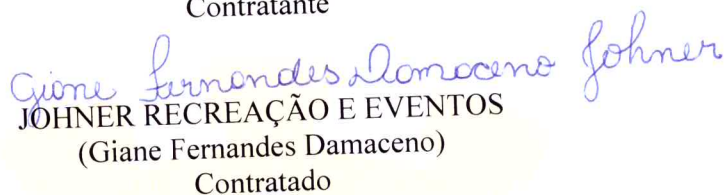 Contratante
Giane Fernandes Damaceno Johner
JOHNER RECREAÇÃO E EVENTOS
(Giane Fernandes Damaceno)
Contratado